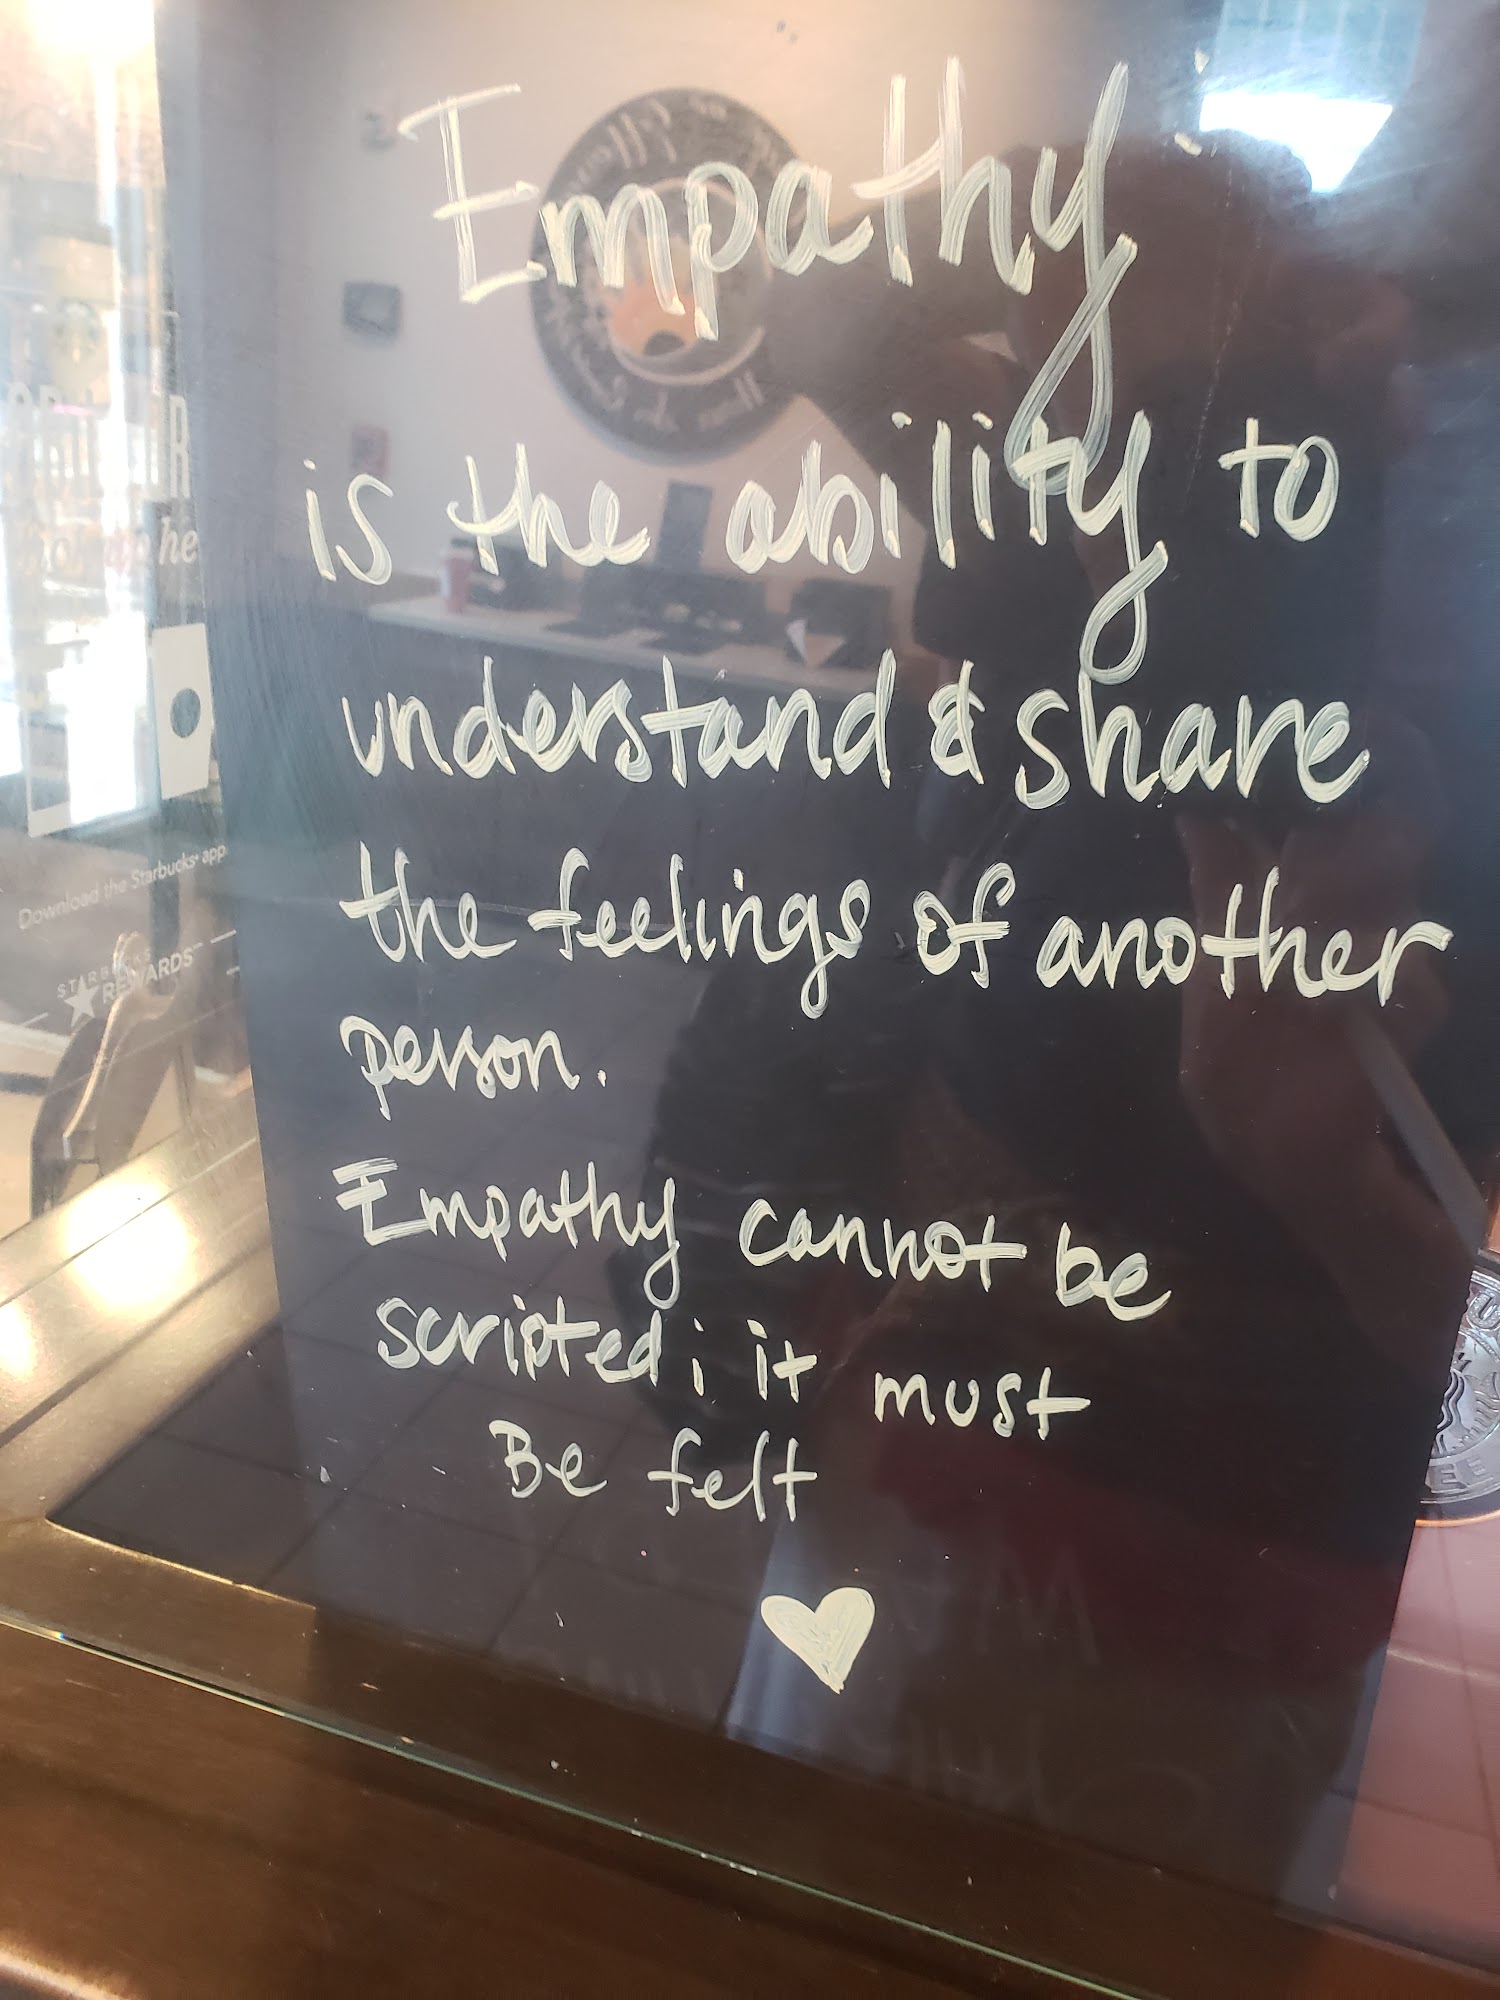 Empathy
is the ability to
understand & share
the feelings of another
person.
Empathy cannot be
scripted; it must
Be felt
he
Download the Starbucks app
STARBUCKS
REWARDS